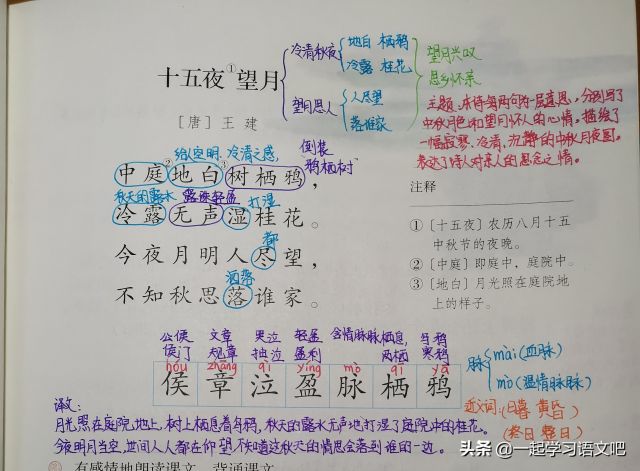 十五夜①望月
[唐] 王 建
冷清秋夜
地白 栖鸦
冷露 桂花
望月思人
人尽望
落谁家
望月兴叹
思乡怀亲
主题:本诗每两句为一层意思,分别写了
中秋月色和望月怀人的心情。描绘了
一幅寂寥、冷清、沉静的中秋月夜图。
表达了诗人对亲人的思念之情。
给人空明、冷清之感,
倒装
"鸦栖树"
中庭②地白③树栖鸦,
秋天的露水
露珠轻盈
打湿
冷露无声湿桂花。
都
今夜月明人尽望,
洒落
不知秋思落谁家。
注释
①〔十五夜〕农历八月十五
中秋节的夜晚。
②〔中庭〕即庭中,庭院中。
③〔地白〕月光照在庭院地
上的样子。
公侯 文章 哭泣 轻盈 含情脉脉 栖息, 乌鸦
侯门 规章 抽泣 盈利 两栖 寒鸦
hóu zhāng qì yíng mò qī yā
侯 章 泣 盈 脉 栖 鸦
脉
mài(血脉)
mò(温情脉脉)
近义词:(日暮 黄昏)
(终日 整日)
译文:
月光照在庭院地上,树上栖息着乌鸦,秋天的露水无声地打湿了庭院中的桂花。
今夜明月当空,世间人人都在仰望,不知道这秋天的情思会落到谁的一边。
有感情地朗读课文。背诵课文。
头条 @一起学习语文吧